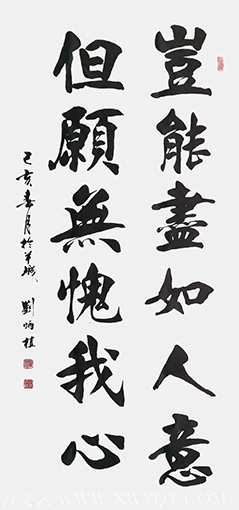 豈能盡如人意
但願無愧我心
己亥春月於羊城 劉炳桂